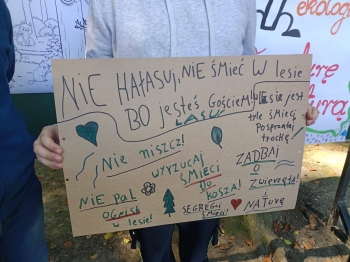 ekolog
NIE HAŁASUJ, NIE ŚMIEĆ W lesie
BO jesteś GOŚCIEM! W LESIE jest
LASU
tyle śmieci,
Posprzątaj
trochę.
Nie niszcz!
WYRZUCAJ
ŚMIECI
DO
KOSZA!
ZADBAJ
O
Zwierzęta!
NIE PAL
OGNISK
w lesie!
SEGREGUJ
śmieci!
NATURĘ